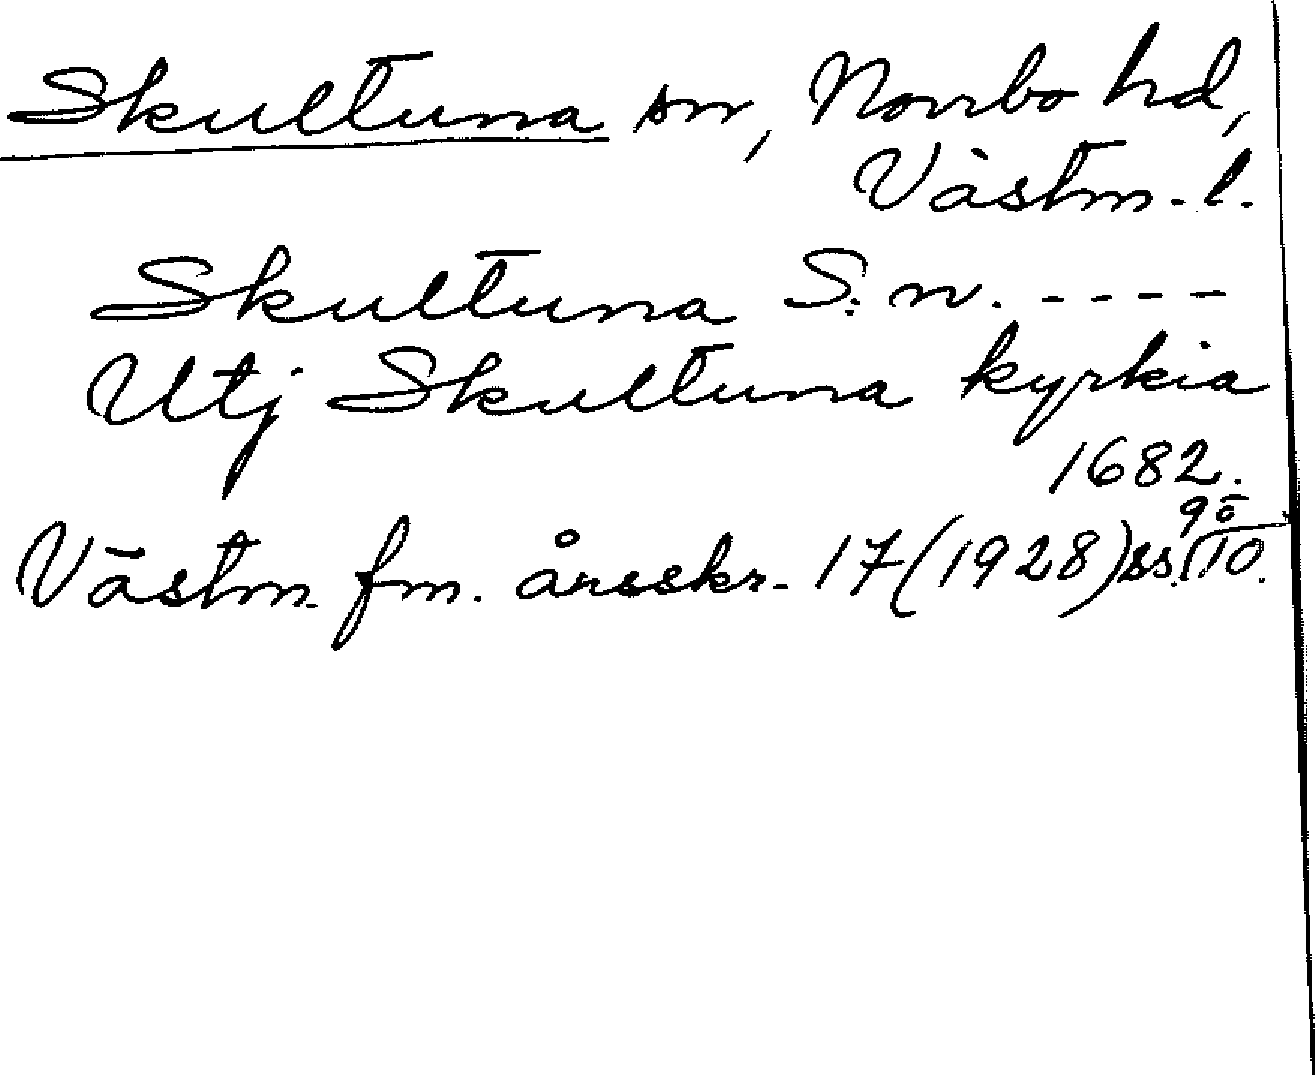 Skultuna sn, Norrbo hd,
Västm. l.
Skultuna S:n. - - - -
Utj Skultuna kyrkia
1682.
Västm. fm. årsskr. 17 (1928) ss. 110.